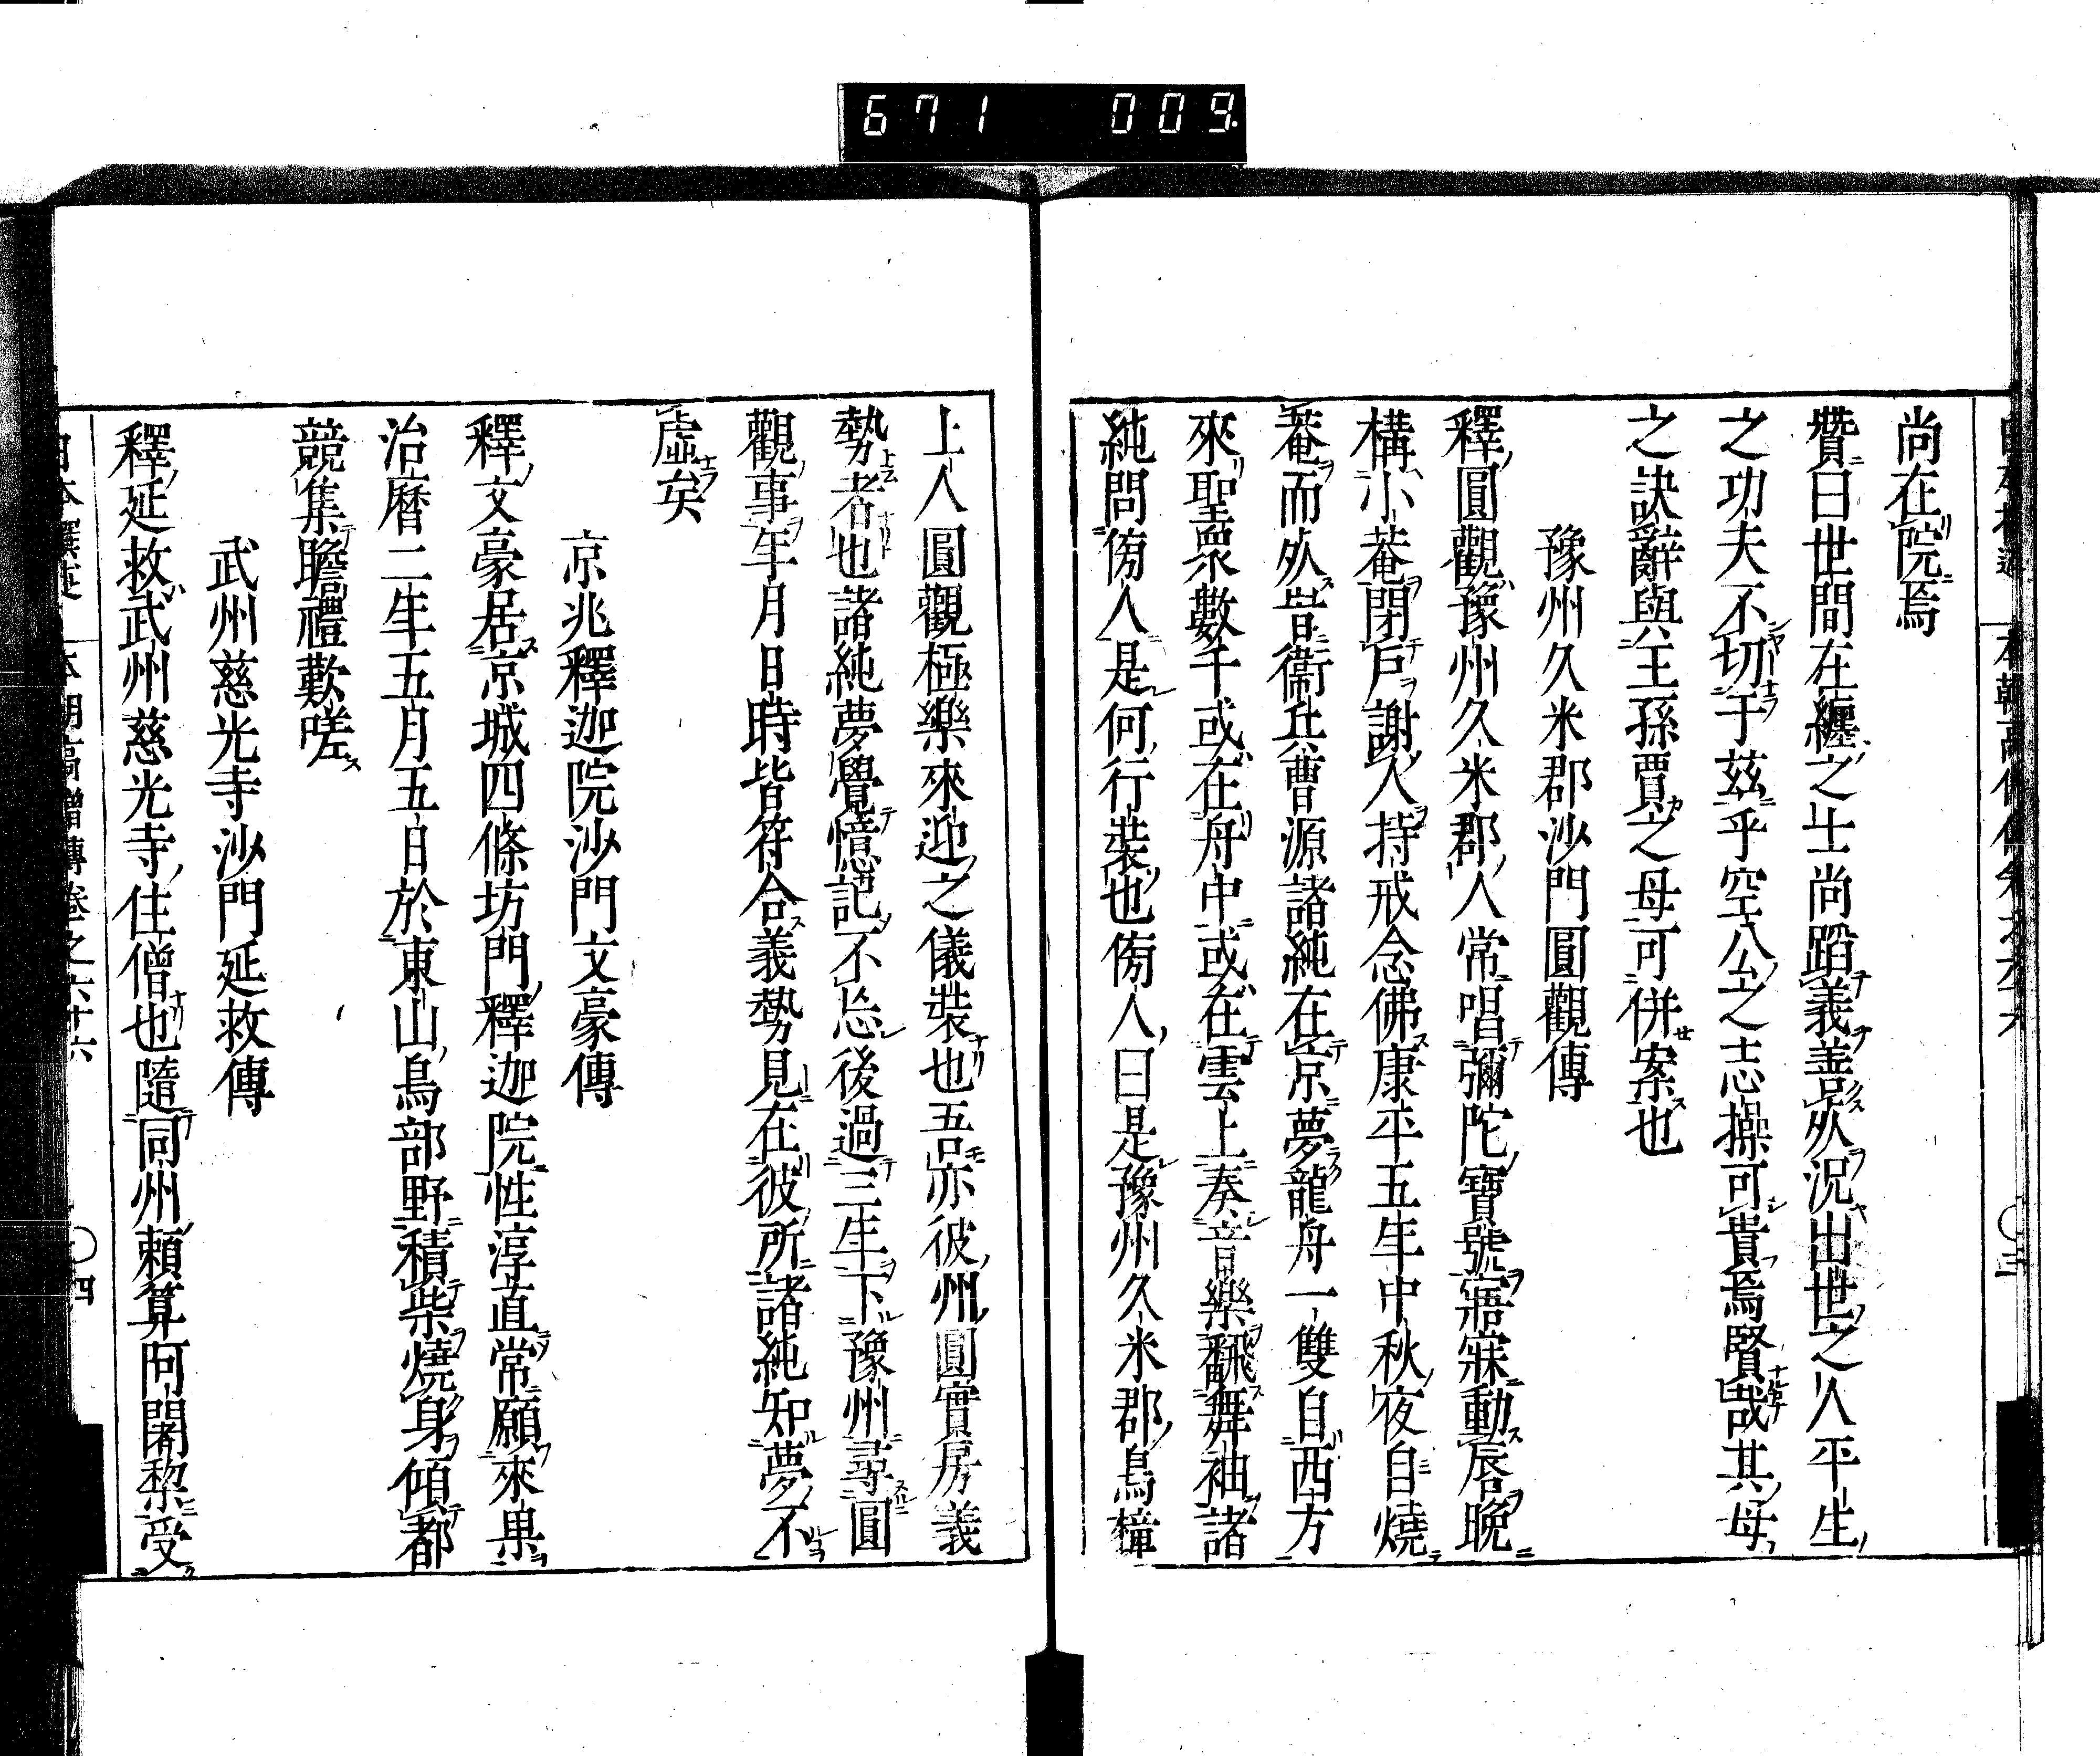 671 009.
尚在院焉
贊曰世間在纏之士尚蹈義善死況出世之人平生
之功夫不切于茲乎空公之志操可貴焉賢哉其母
之訣辭與王孫賈之母可併案也
豫州久米郡沙門圓觀傳
釋圓觀豫州久米郡人常唱彌陀寶號寤寐動唇晚
構小菴閉戶謝人持戒念佛康平五年中秋夜自燒
菴而死昔衞丘曹源諸純在京夢龍舟一雙自西方
來聖眾數千或在舟中或在雲上奏音樂飜舞袖諸
純問傍人是何行裝也傍人曰是豫州久米郡鳥樟
上人圓觀極樂來迎之儀裝也吾亦彼州圓實房義
勢者也諸純夢覺憶記不忘後過三年下豫州尋圓
觀事年月日時皆符合義勢見在彼所諸純知夢不
虛矣
京兆釋迦院沙門文豪傳
釋文豪居京城四條坊門釋迦院性淳直常願來果
治曆二年五月五日於東山鳥部野積柴燒身傾都
競集瞻禮歎嗟
武州慈光寺沙門延救傳
釋延救武州慈光寺住僧也隨同州賴算阿闍梨受
本朝高僧傳卷之六十六
四